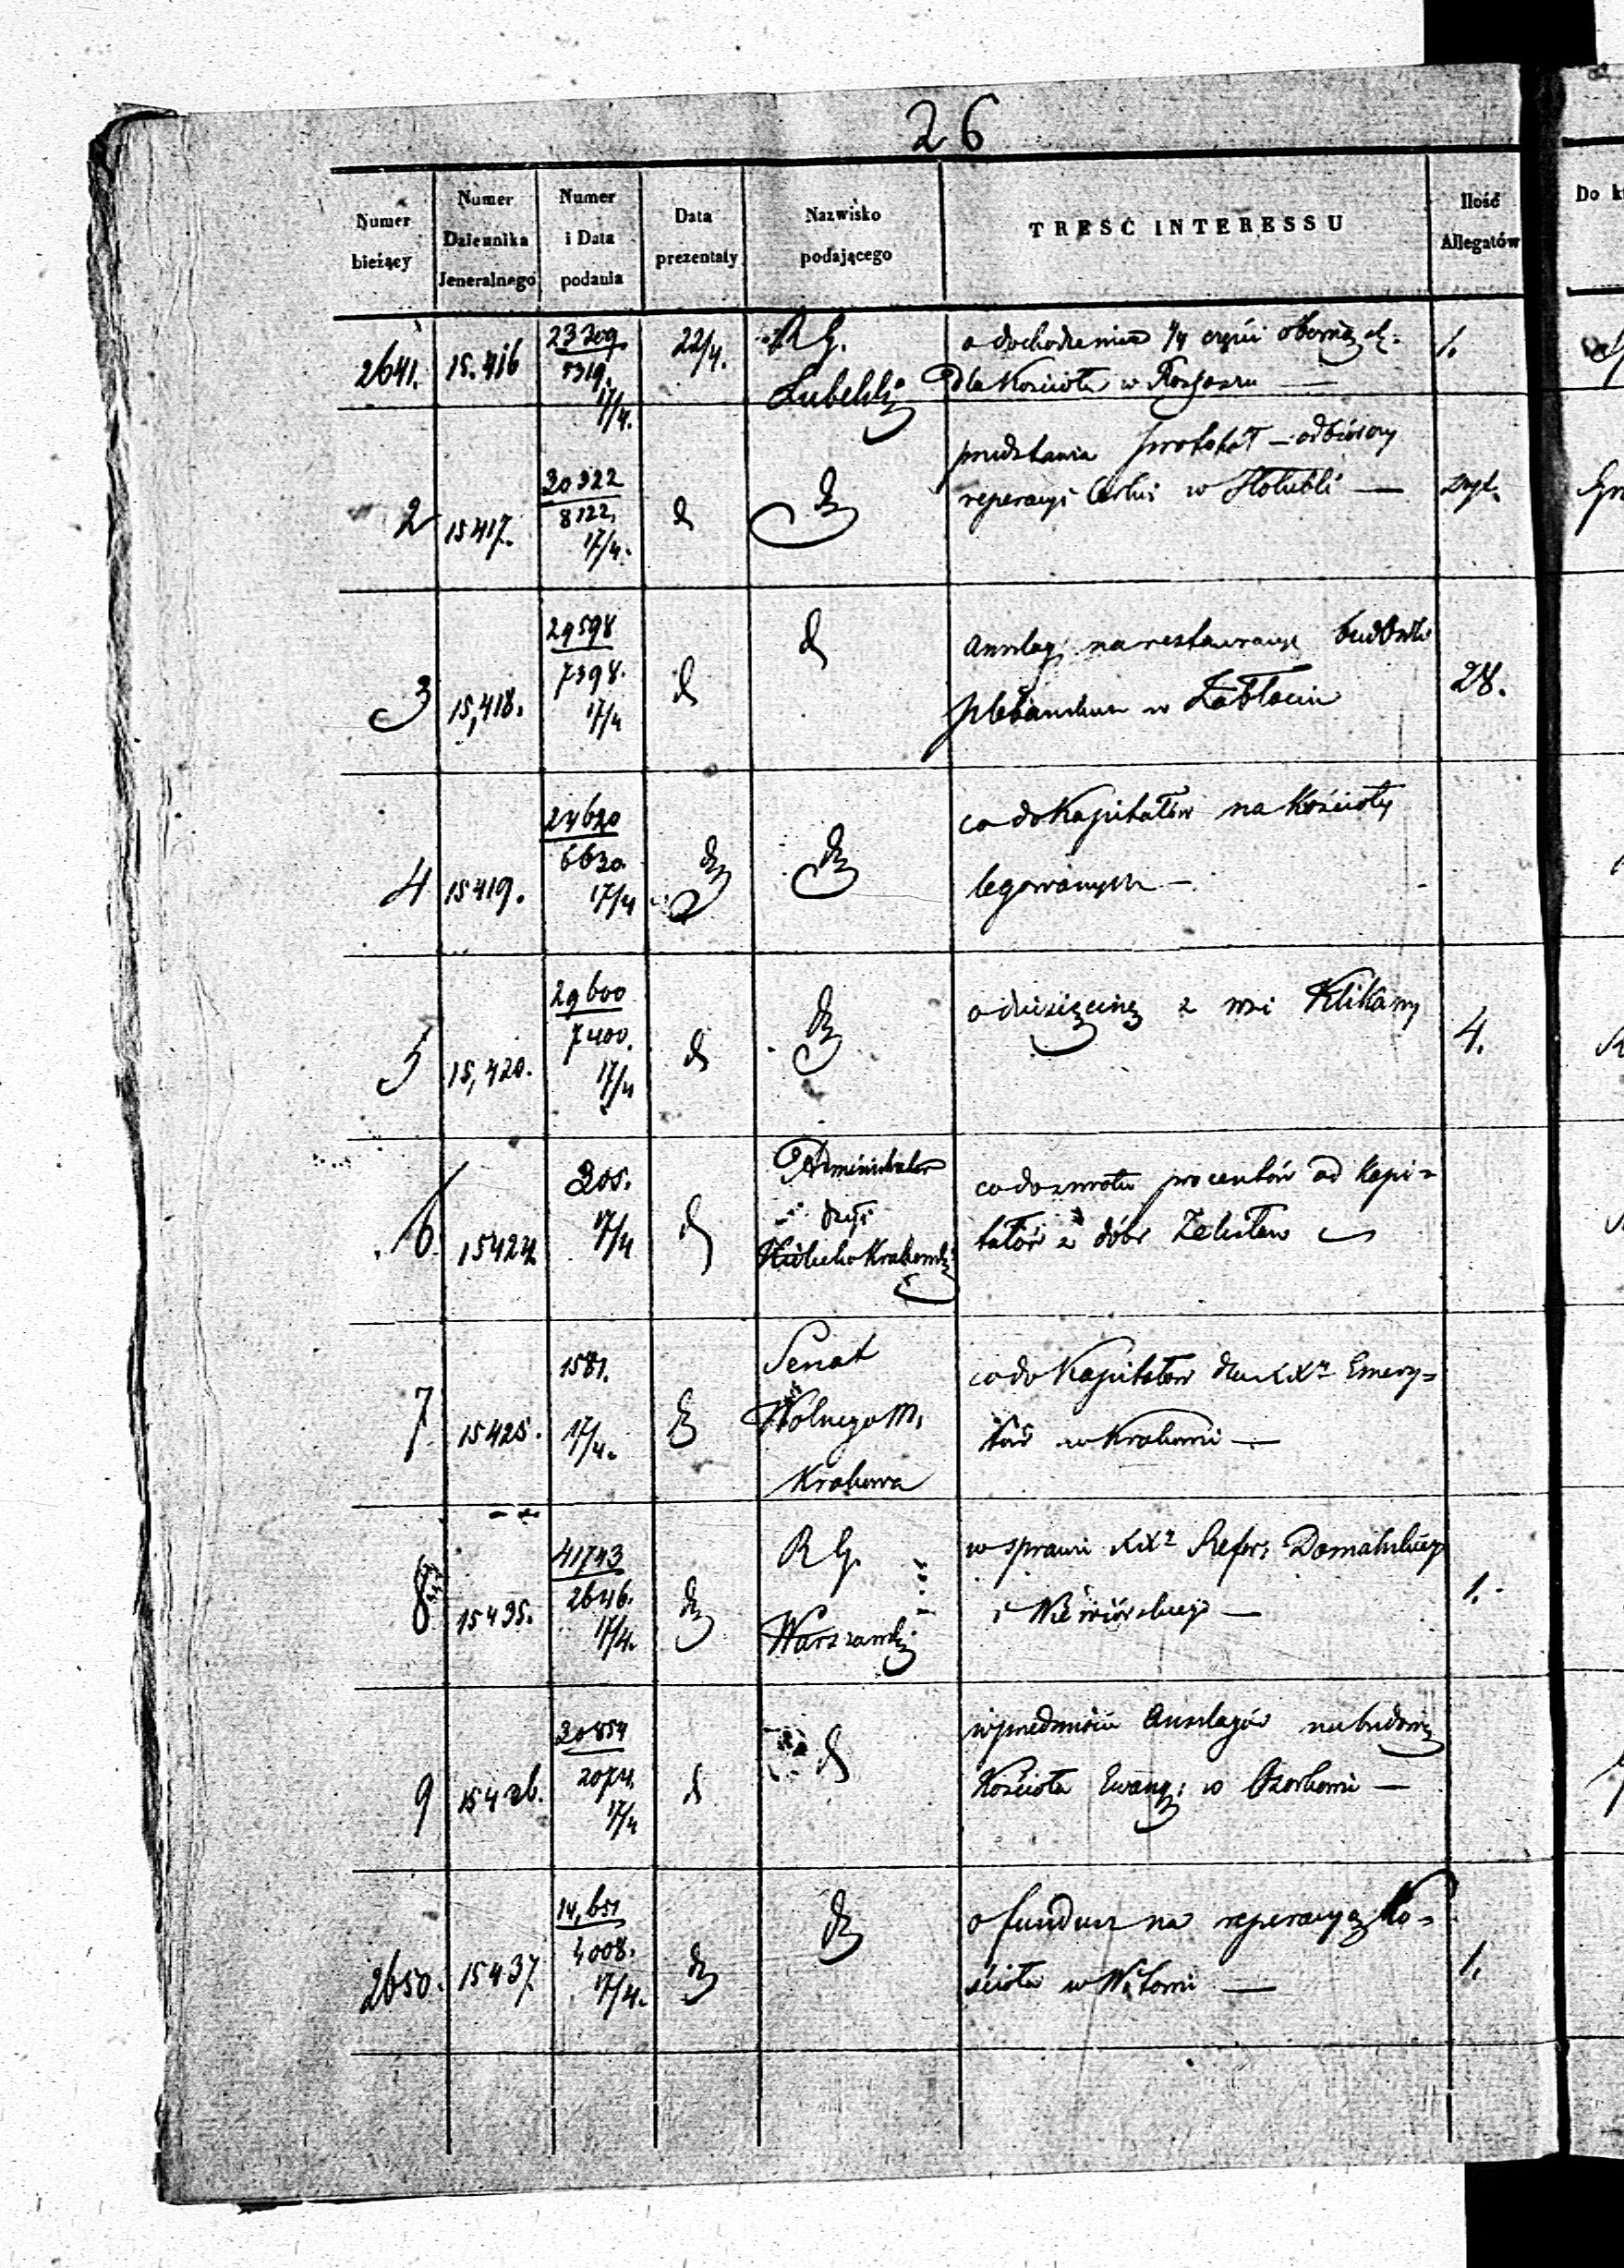 26
Numer bieżący
Numer Dziennika Jeneralnego
Numer i Data podania
Data prezentaty
Nazwisko podającego
TREŚĆ INTERESSU
Ilość Allegatów
Do
2641. 15.416 23209 5319. 17/4. 22/4. R G. Lubelski o dochodzenie 1/4 części
dla Kościoła w 1.
2 15417. 30322 8122. 17/4. d przedstawia protokół odbiorczy
reperacyi Cerkwi w Hołubli —
3 15,418. 29598 7398. 17/4 d d Anszlagi na restauracye budowli
plebańskich w Zabłociu 28.
4 15419. 6630. 17/4 co do Kapitałów na Kościoły
legowanych —
5 15,420. 29600 7400. 17/4 d o dziesięcinę z wsi Klikawy 4.
6 15424 305. 17/4 d Administrator
Dyec:
Kielecko Krakowskiej
co do zwrotu procentów od Kapi=
tałów z dóbr
7 15425. 1581. 17/4. Senat
Wolnego M.
Krakowa
co do Kapitałów dla XXy Emery=
tów w Krakowie —
8 15435. 41743 2646. 17/4. R G.
Warszawski
w sprawie XXy Refor:
i — 1.
9 15436. 20854 2074. 17/4 d d w przedmiocie Anszlagów na budowę
Kościoła Ewang: w Ozorkowie —
2650. 15437 14,651 4008. 17/4. o fundusz na reperacyą Ko=
ścioła w — 1.